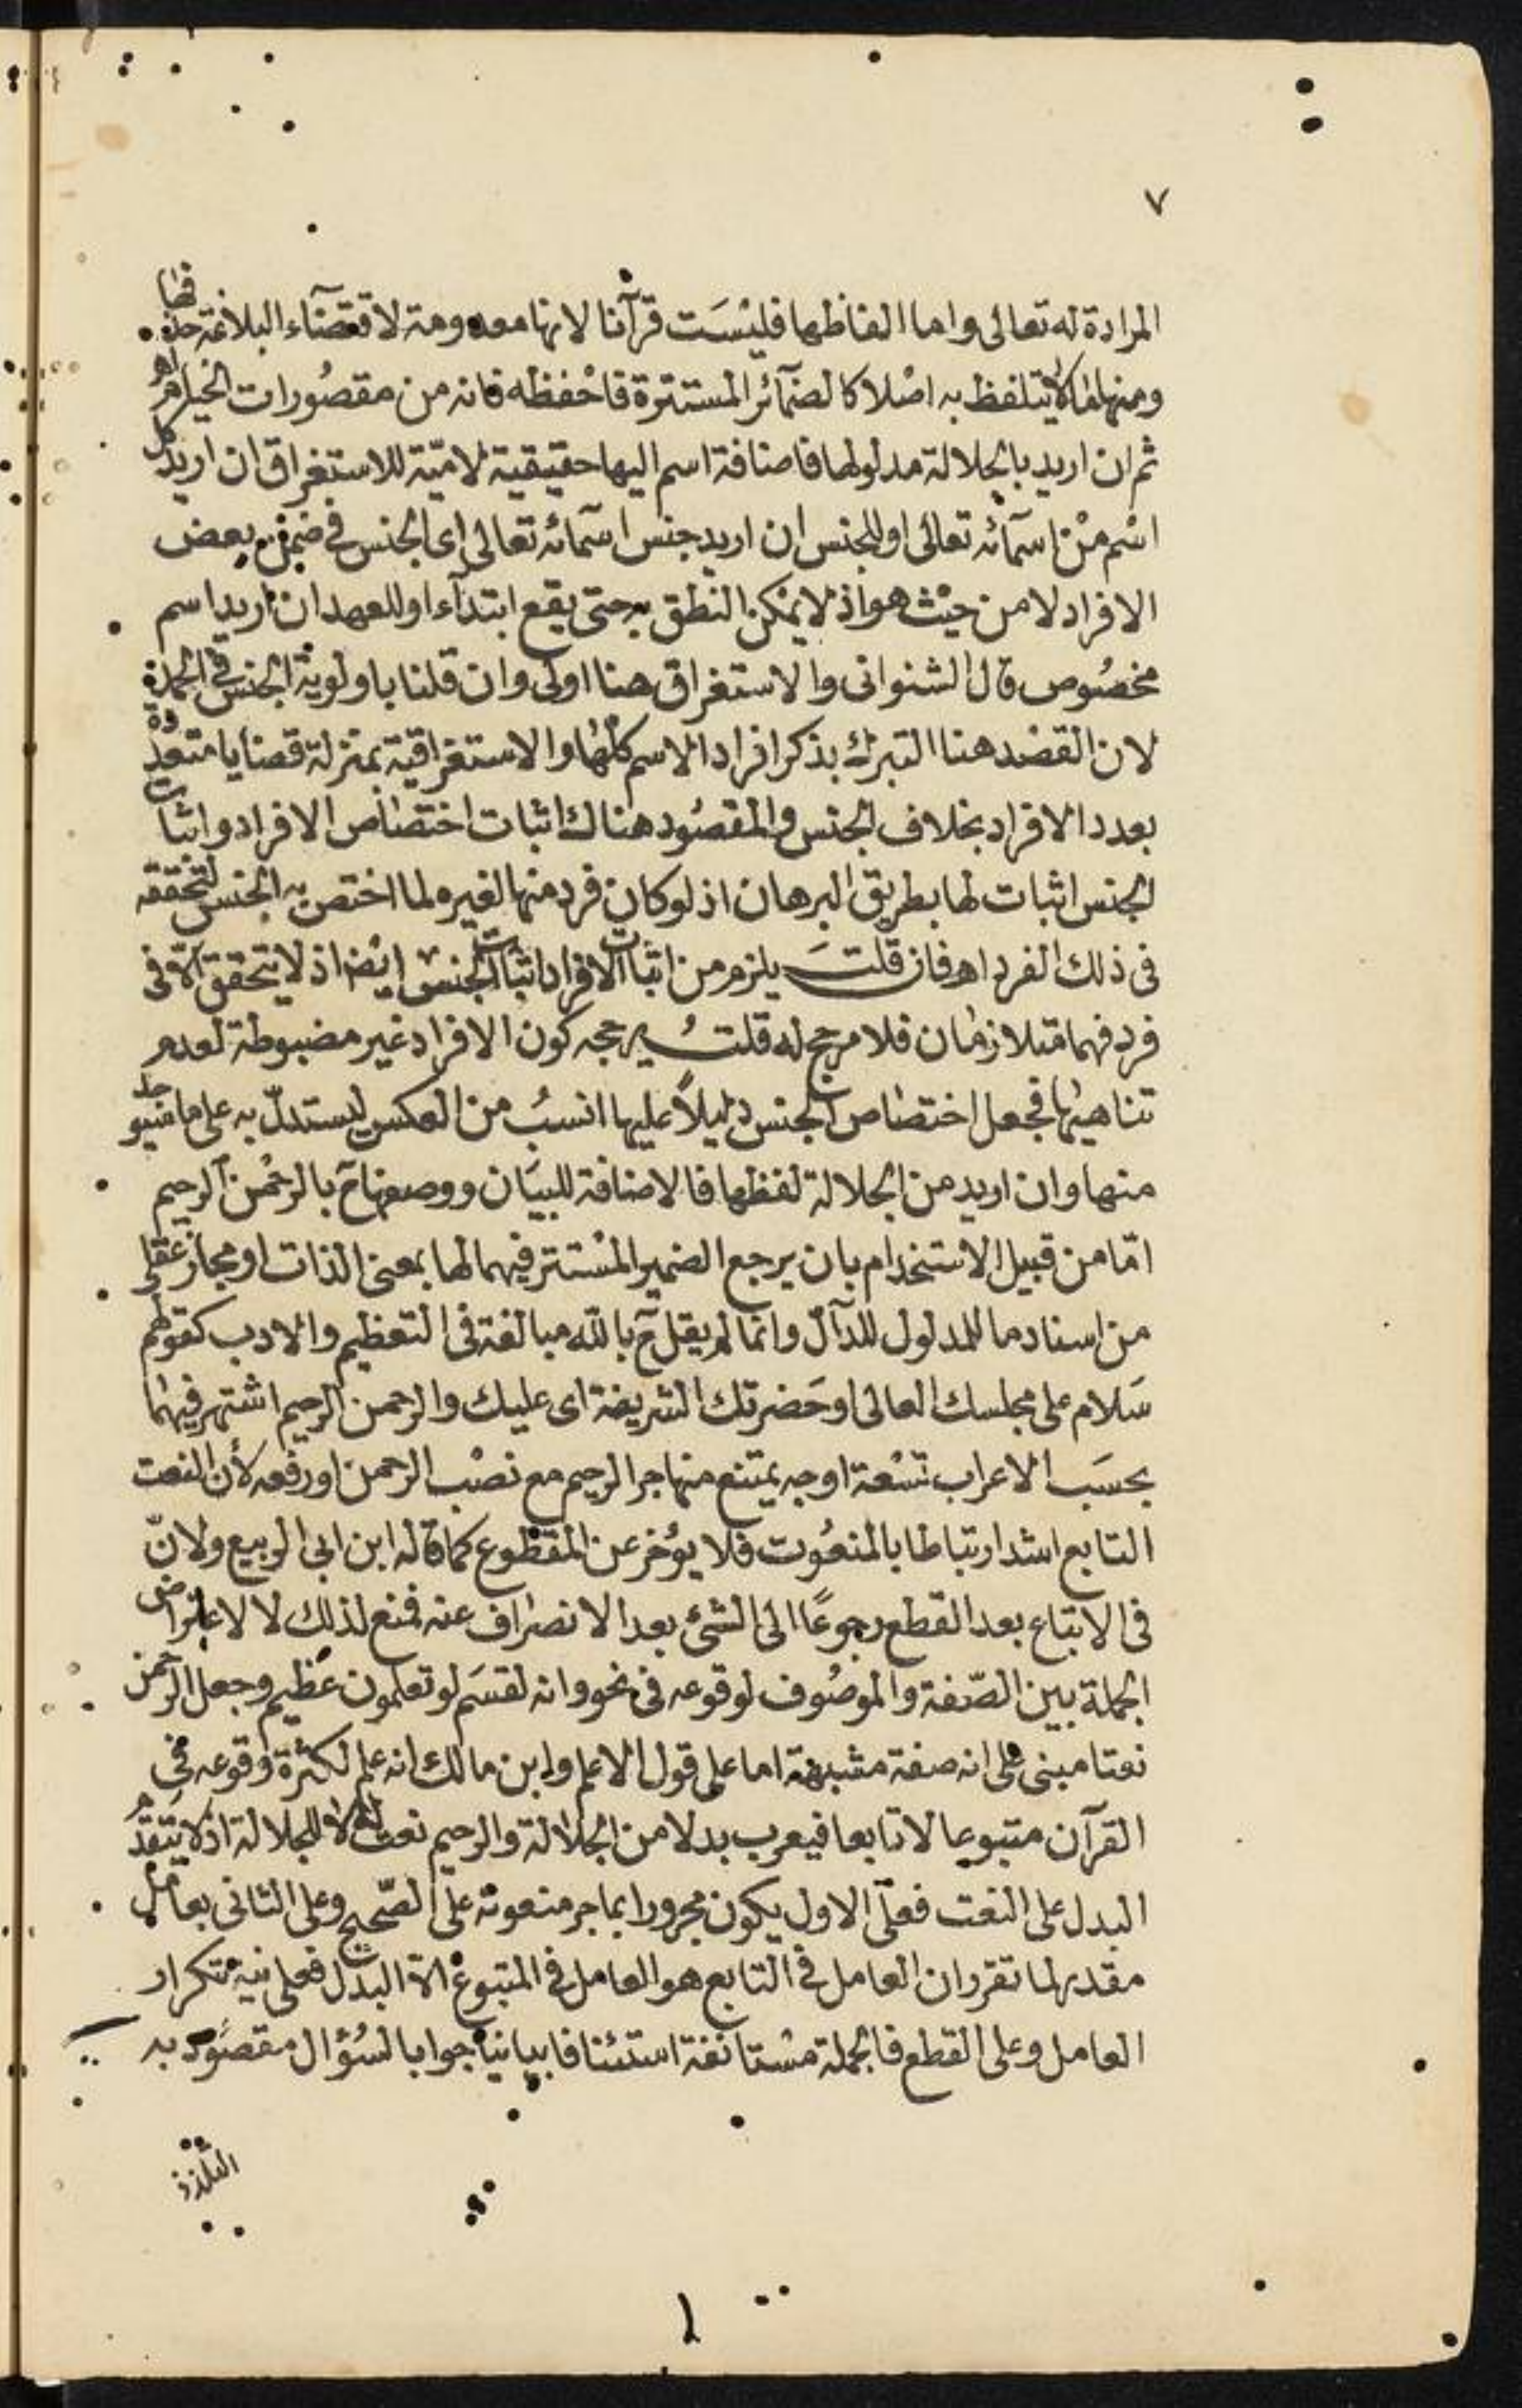 ٧
المرادة له تعالى واما الفاظها فليست قرآنا لانها معدومة لاقتضاء البلاغة حذفها
ومنها ما لا يتلفظ به اصلا كالضمآئر المستترة فاحفظه فانه من مقصورات الخيام اهـ
ثم ان اريد بالجلالة مدلولها فاضافة اسم اليها حقيقية لاميّة للاستغراق ان اريد كل
اسم من اسمآئه تعالى او للجنس ان اريد جنس اسمآئه تعالى اى الجنس فى ضمن بعض
الافراد لا من حيث هو اذ لا يمكن النطق به حتى يقع ابتدآء او للعهد ان اريد اسم
مخصوص قال الشنوانى والاستغراق هنا اولى وان قلنا باولوية الجنس فى الحمدلة
لان القصد هنا التبرك بذكر افراد الاسم كلها والاستغراقية بمنزلة قضايا متعددة
بعدد الافراد بخلاف الجنس والمقصود هناك اثبات اختصاص الافراد واثبات
الجنس اثبات لها بطريق البرهان اذ لو كان فرد منها لغيره لما اختص به الجنس لتحققه
فى ذلك الفرد اهـ فان قلتَ يلزم من اثبات الافراد اثبات الجنس ايضا اذ لا يتحقق الّا فى
فرد فهما متلازمان فلا مرجح له قلتُ يرجحه كون الافراد غير مضبوطة لعدم
تناهيها فجعل اختصاص الجنس دليلاً عليها انسبُ من العكس ليستدلّ به على ما سيوجد
منها وان اريد من الجلالة لفظها فالاضافة للبيان ووصفها ح بالرحمن الرحيم
امّا من قبيل الاستخدام بان يرجع الضمير المستتر فيهما لها بمعنى الذات او مجاز عقلى
من اسناد ما للمدلول للدآلّ وانما لم يقل ح بالله مبالغة فى التعظيم والادب كقولهم
سَلام على مجلسك العالى او حَضرتك الشريفة اى عليك والرحمن الرحيم اشتهر فيهما
بحسَب الاعراب تسْعة اوجه يمتنع منها جر الرحيم مع نصْب الرحمن او رفعه لأن النعت
التابع اشد ارتباطا بالمنعُوت فلا يؤخر عن المقطوع كما قاله ابن ابى الربيع ولانّ
فى الاتباع بعد القطع رجوعًا الى الشئ بعد الانصراف عنه فمنع لذلك لا لاعتراض
الجملة بين الصّفة والموصُوف لوقوعه فى نحو وانه لقسَم لو تعلمون عظيم وجعل الرحمن
نعتا مبنى على انه صفة مشبهة اما على قول الاعلم وابن مالك انه علم لكثرة وقوعه فى
القرآن متبوعا لا تابعا فيعرب بدلا من الجلالة والرحيم نعت له لا للجلالة اذ لا يتقدم
البدل على النعت فعلى الاول يكون مجرورا بما جر منعوته على الصّحيح وعلى الثانى بعامل
مقدر لما تقرر ان العامل فى التابع هو العامل فى المتبوع الّا البدل فعلى نية تكرار
العامل وعلى القطع فالجملة مسْتأنفة استئنافا بيانيا جوابا لسُؤال مقصود به
التلذذ